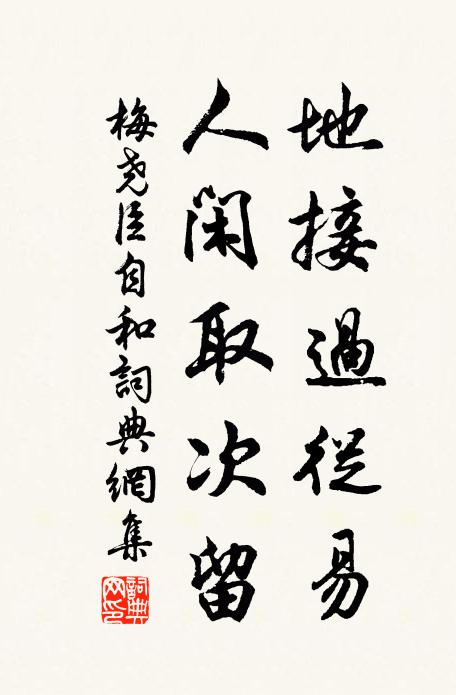 地接過從易
人閑取次留
梅尧臣自和詞典網集
詞典網印